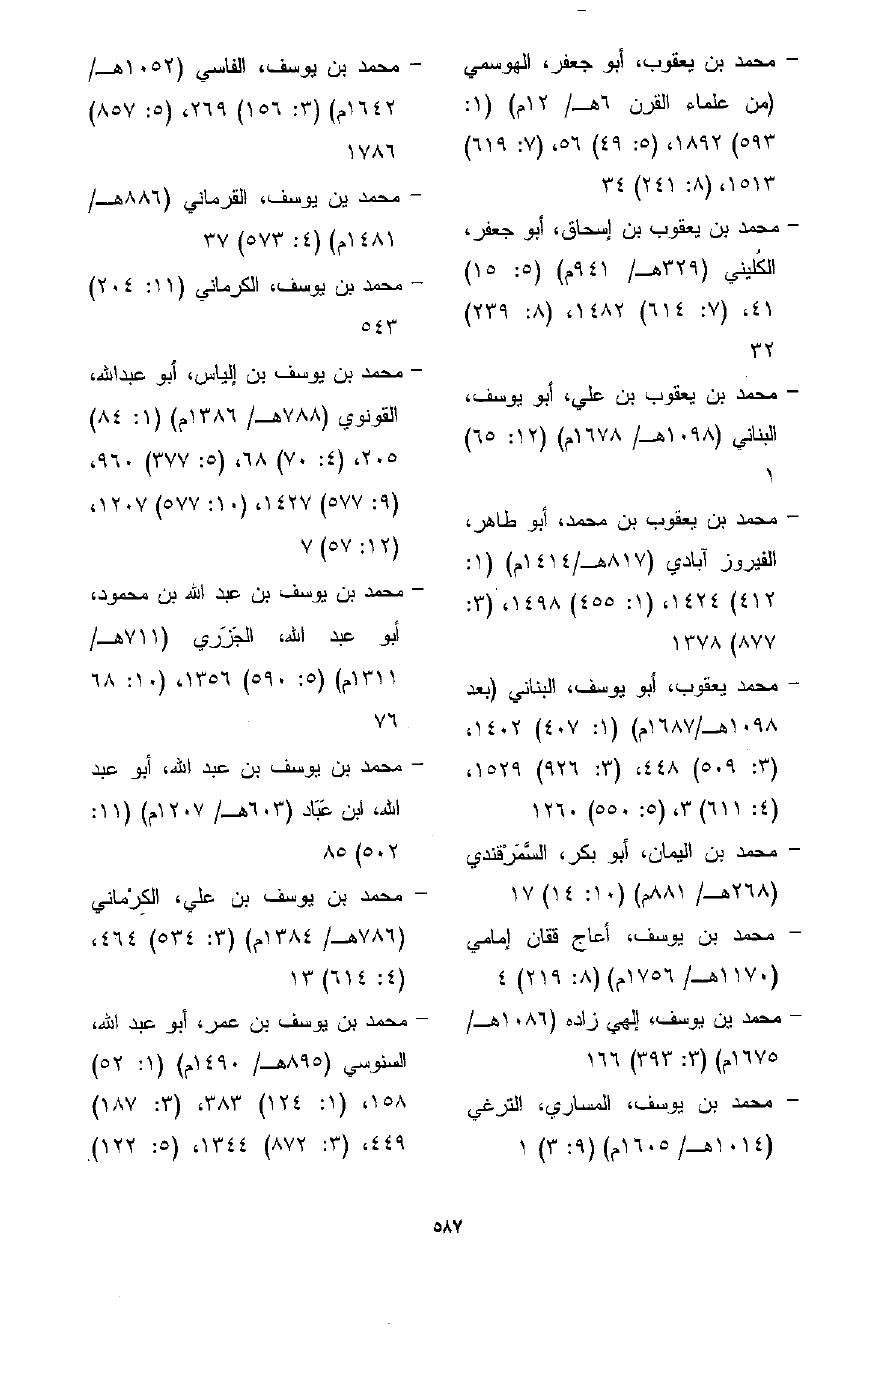 - محمد بن يعقوب، أبو جعفر، الهوسمي
(من علماء القرن ٦هـ/ ١٢م) (١:
٥٩٣) ١٨٩٢، (٥: ٤٩) ٥٦، (٧: ٦١٩)
١٥١٣، (٨: ٢٤١) ٣٤
- محمد بن يعقوب بن إسحاق، أبو جعفر،
الكُليني (٣٢٩هـ/ ٩٤١م) (٥: ١٥)
٤١، (٧: ٦١٤) ١٤٨٢، (٨: ٢٣٩)
٣٢
- محمد بن يعقوب بن علي، أبو يوسف،
البناني (١٠٩٨هـ/ ١٦٧٨م) (١٢: ٦٥)
١
- محمد بن يعقوب بن محمد، أبو طاهر،
الفيروز آبادي (٨١٧هـ/١٤١٤م) (١:
٤١٢) ١٤٢٤، (١: ٤٥٥) ١٤٩٨، (٣:
٨٧٧) ١٣٧٨
- محمد يعقوب، أبو يوسف، البناني (بعد
١٠٩٨هـ/١٦٨٧م) (١: ٤٠٧) ١٤٠٢،
(٣: ٥٠٩) ٤٤٨، (٣: ٩٢٦) ١٥٢٩،
(٤: ٦١١) ٣، (٥: ٥٥٠) ١٢٦٠
- محمد بن اليمان، أبو بكر، السَّمَرْقندي
(٢٦٨هـ/ ٨٨١م) (١٠: ١٤) ١٧
- محمد بن يوسف، أعاج ققان إمامي
(١١٧٠هـ/ ١٧٥٦م) (٨: ٢١٩) ٤
- محمد بن يوسف، إلهي زاده (١٠٨٦هـ/
١٦٧٥م) (٣: ٣٩٣) ١٦٦
- محمد بن يوسف، المساري، الترغي
(١٠١٤هـ/ ١٦٠٥م) (٩: ٣) ١
- محمد بن يوسف، الفاسي (١٠٥٢هـ/
١٦٤٢م) (٣: ١٥٦) ٢٦٩، (٥: ٨٥٧)
١٧٨٦
- محمد بن يوسف، القرماني (٨٨٦هـ/
١٤٨١م) (٤: ٥٧٣) ٣٧
- محمد بن يوسف، الكرماني (١١: ٢٠٤)
٥٤٣
- محمد بن يوسف بن إلياس، أبو عبدالله،
القونوي (٧٨٨هـ/ ١٣٨٦م) (١: ٨٤)
٢٠٥، (٤: ٧٠) ٦٨، (٥: ٣٧٧) ٩٦٠،
(٩: ٥٧٧) ١٤٢٧، (١٠: ٥٧٧) ١٢٠٧،
(١٢: ٥٧) ٧
- محمد بن يوسف بن عبد الله بن محمود،
أبو عبد الله، الجَزَري (٧١١هـ/
١٣١١م) (٥: ٥٩٠) ١٣٥٦، (١٠: ٦٨
٧٦
- محمد بن يوسف بن عبد الله، أبو عبد
الله، ابن عبّاد (٦٠٣هـ/ ١٢٠٧م) (١١:
٥٠٢) ٨٥
- محمد بن يوسف بن علي، الكِرْماني
(٧٨٦هـ/ ١٣٨٤م) (٣: ٥٣٤) ٤٦٤،
(٤: ٦١٤) ١٣
- محمد بن يوسف بن عمر، أبو عبد الله،
السنوسي (٨٩٥هـ/ ١٤٩٠م) (١: ٥٢)
١٥٨، (١: ١٢٤) ٣٨٣، (٣: ١٨٧)
٤٤٩، (٣: ٨٧٢) ١٣٤٤، (٥: ١٢٢)
٥٨٧